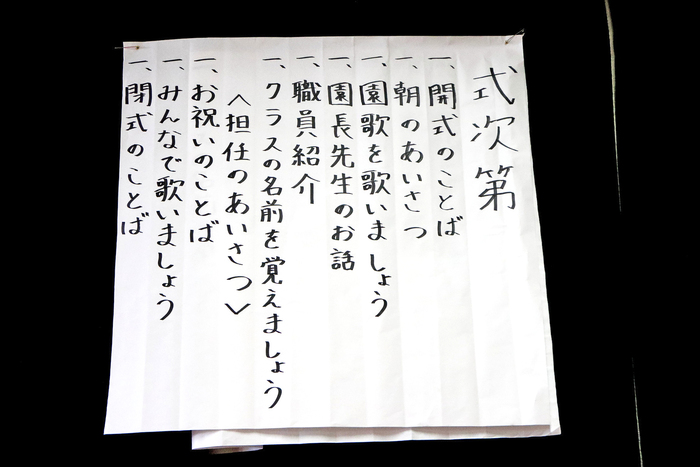 式次第
一、開式のことば
一、朝のあいさつ
一、園歌を歌いましょう
一、園長先生のお話
一、職員紹介
一、クラスの名前を覚えましょう
＜担任のあいさつ＞
一、お祝いのことば
一、みんなで歌いましょう
一、閉式のことば